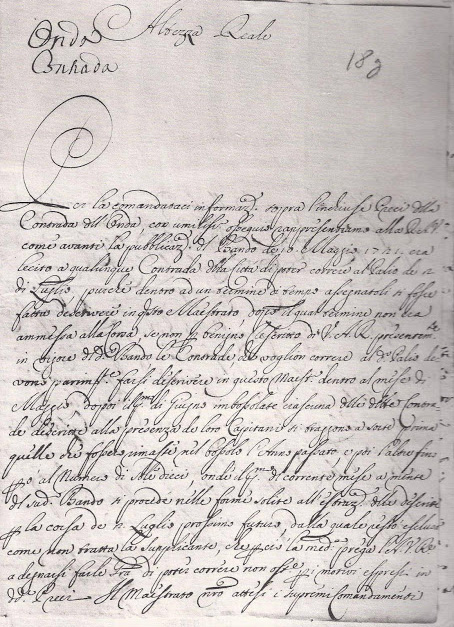 Onda
Contrada
Altezza Reale
189
Per la comandataci informaz.e sopra l'incluse Preci della
Contrada dell Onda, con umiliss.i ossequi rappresentiamo alla R.A.V.
come avanti la pubblicaz.e del Bando de 10 Maggio 1721, era
lecito a qualunque Contrada della Città di poter correre al Palio de 2
di Luglio, purche dentro ad un termine a tempo assegnatoli si fosse
fatta descrivere in q.sto Maestrato dopo il qual termine non era
ammessa alla Corsa se non p benigno rescritto di V.A.R. presentem.te
in vigore di d.o Bando le Contrade che voglion correre al d.o Palio de
vono farsi descrivere in questo Maest.o dentro al mese di
Maggio, dopo il p.mo di Giugno imbossolate ciascuna delle dette Contra-
de descritte alla presenza de loro Capitani si traggono a sorte prima
quelle che fossero rimaste nel bossolo l'Anno passato e poi l'altre fino
al Numero di Sole dieci, onde il p.mo di corrente mese a mente
di sud.o Bando si procedè nelle forme solite all'estraz.e della descritte
p la corsa de 2 Luglio prossimo futuro, dalla quale restò esclusa
come non tratta la supplicante, che p ciò la med.a prega l'A.V.R.e
a degnarsi farle Gra. di poter correre non ost.e p i motivi espressi in
d.e Preci. Il Maestrato nro attesi i supremi Comandamenti